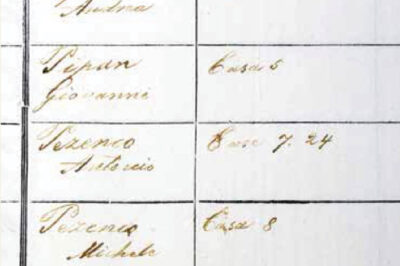 Andrea
Pipan Casa 5
Giovanni
Pezenco Case 7. 24
Antonio
Pezenco Casa 8
Michele